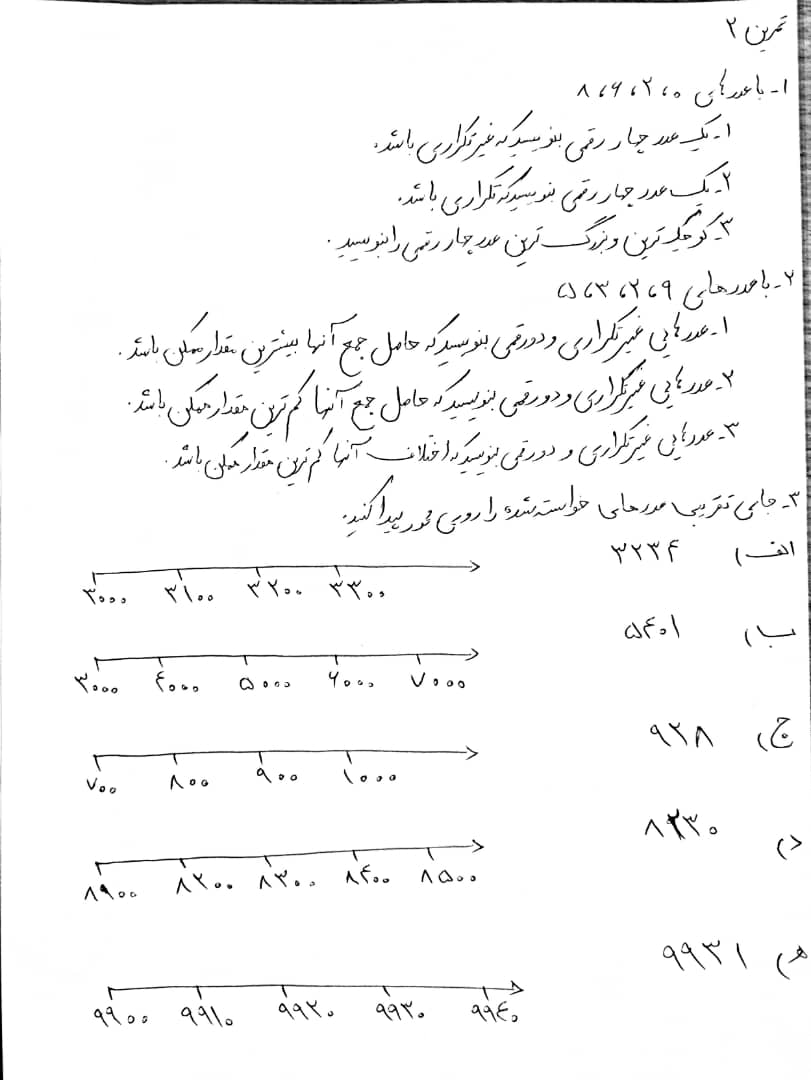 تمرین ۲
۱- با عددهای ۰، ۲، ۶، ۸
۱- یک عدد چهار رقمی بنویسید که غیرتکراری باشد.
۲- یک عدد چهار رقمی بنویسید که تکراری باشد.
۳- کوچک‌ترین و بزرگ‌ترین عدد چهار رقمی را بنویسید.
۲- با عددهای ۹، ۲، ۳، ۵
۱- عددهایی غیرتکراری و دورقمی بنویسید که حاصل جمع آنها بیشترین مقدار ممکن باشد.
۲- عددهایی غیرتکراری و دورقمی بنویسید که حاصل جمع آنها کم‌ترین مقدار ممکن باشد.
۳- عددهایی غیرتکراری و دورقمی بنویسید که اختلاف آنها کم‌ترین مقدار ممکن باشد.
۳- جای تقریبی عددهای خواسته شده را روی محور پیدا کنید.
الف) ۳۲۳۴
۳۰۰۰ ۳۱۰۰ ۳۲۰۰ ۳۳۰۰
ب) ۵۴۰۱
۳۰۰۰ ۴۰۰۰ ۵۰۰۰ ۶۰۰۰ ۷۰۰۰
ج) ۹۲۸
۷۰۰ ۸۰۰ ۹۰۰ ۱۰۰۰
د) ۸۲۳۰
۸۹۰۰ ۸۲۰۰ ۸۳۰۰ ۸۴۰۰ ۸۵۰۰
ه) ۹۹۳۱
۹۹۰۰ ۹۹۱۰ ۹۹۲۰ ۹۹۳۰ ۹۹۴۰